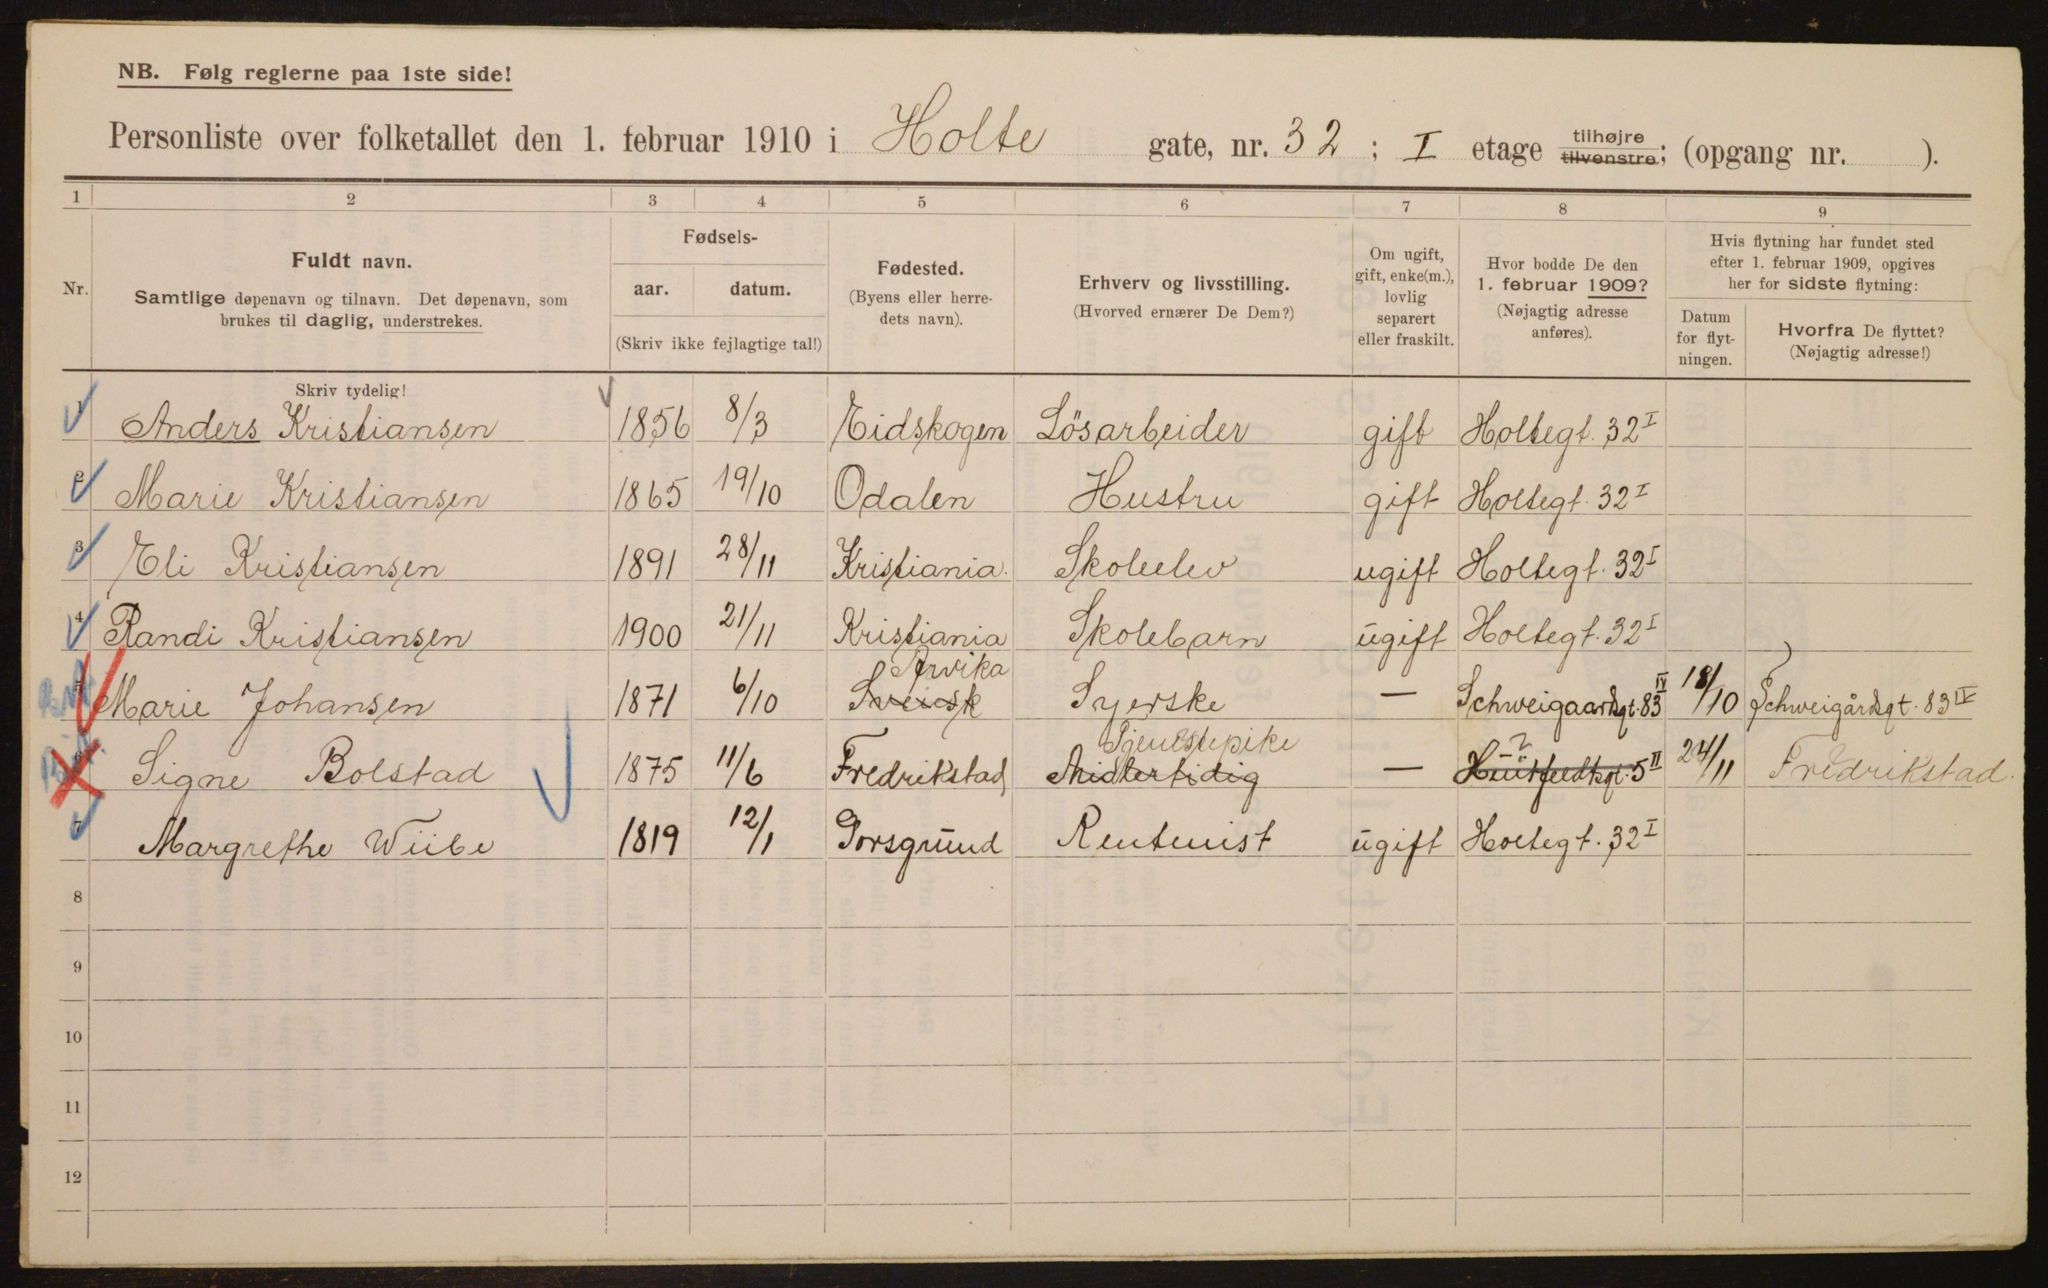 NB. Følg reglerne paa 1ste side!
Personliste over folketallet den 1. februar 1910 i Holte gate, nr. 32; I etage tilhøjre tilvenstre; (opgang nr. ).
1 2 3 4 5 6 7 8 9
Nr.
Fuldt navn.
Samtlige døpenavn og tilnavn. Det døpenavn, som
brukes til daglig, understrekes.
Fødsels-
aar. datum.
(Skriv ikke fejlagtige tal!)
Fødested.
(Byens eller herre-
dets navn).
Erhverv og livsstilling.
(Hvorved ernærer De Dem?)
Om ugift,
gift, enke(m.),
lovlig
separert
eller fraskilt.
Hvor bodde De den
1. februar 1909?
(Nøjagtig adresse
anføres).
Hvis flytning har fundet sted
efter 1. februar 1909, opgives
her for sidste flytning:
Datum
for flyt-
ningen.
Hvorfra De flyttet?
(Nøjagtig adresse!)
Skriv tydelig!
1 Anders Kristiansen 1856 8/3 Eidskogen Lösarbeider gift Holtegt. 32 I
2 Marie Kristiansen 1865 19/10 Odalen Hustru gift Holtegt. 32 I
3 Eli Kristiansen 1891 28/11 Kristiania. Skoleelev ugift Holtegt. 32 I
4 Randi Kristiansen 1900 21/11 Kristiania Skolebarn ugift Holtegt. 32 I
Arvika
5 Marie Johansen 1871 6/10 Svensk Syerske — Schweigaardsgt. 83 IV 18/10 Schweigårdsgt. 83 IV
Tjenestepike ?
6 Signe Bolstad 1875 11/6 Fredrikstad Midlertidig — Huitfeldtsgt. 5 II 24/11 Fredrikstad.
7 Margrethe Wiibe 1819 12/1 Porsgrund Rentenist ugift Holtegt. 32 I
8
9
10
11
12